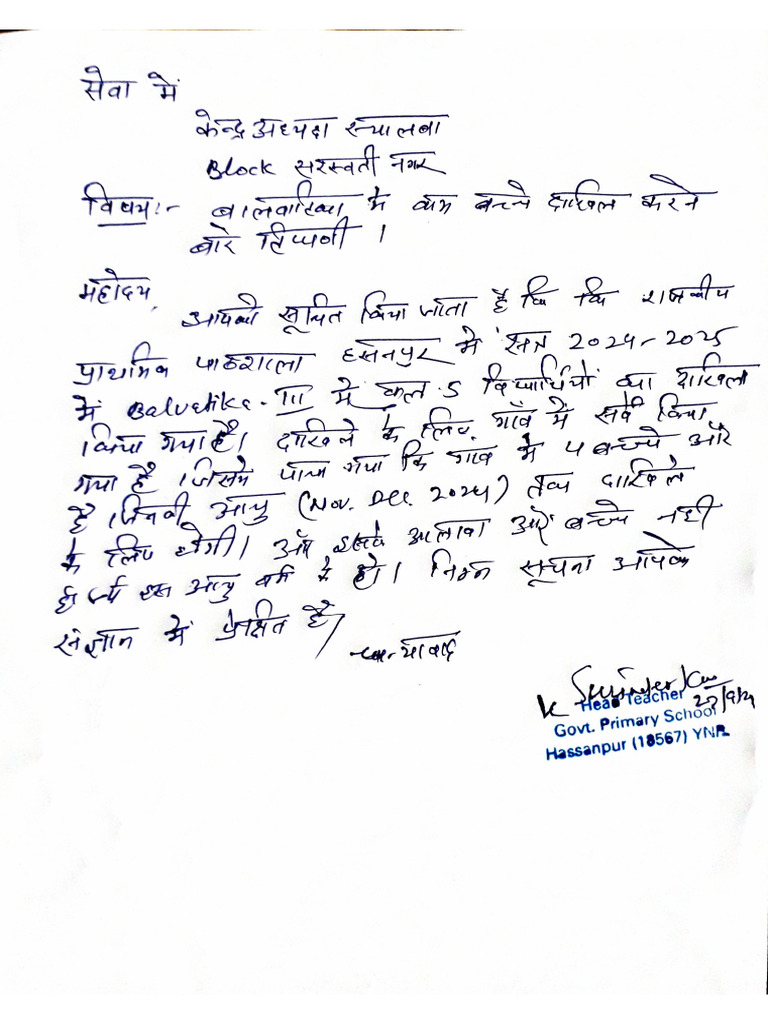 सेवा में
केन्द्र अध्यक्ष स्यालबा
Block सरस्वती नगर
विषय:- बालवाटिका में कम बच्चे दाखिल करने
बारे टिप्पणी ।
महोदय,
आपको सूचित किया जाता है कि कि राजकीय
प्राथमिक पाठशाला हसनपुर में सत्र 2024-2025
में Balvatika-III में कुल 5 विद्यार्थियों का दाखिला
किया गया है। दाखिले के लिए गाँव में सर्वे किया
गया है जिसमे पाया गया कि गाव में 4 बच्चे और
है जिनकी आयु (Nov. Dec. 2024) तक दाखिले
के लिए होगी। इसके अलावा और बच्चे नही
है जो इस आयु वर्ग के हो। निम्न सूचना आपके
संज्ञान में प्रेक्षित है।
धन्यावाद
Surinder Kumar
27/9/24
Head Teacher
Govt. Primary School
Hassanpur (18567) YNR